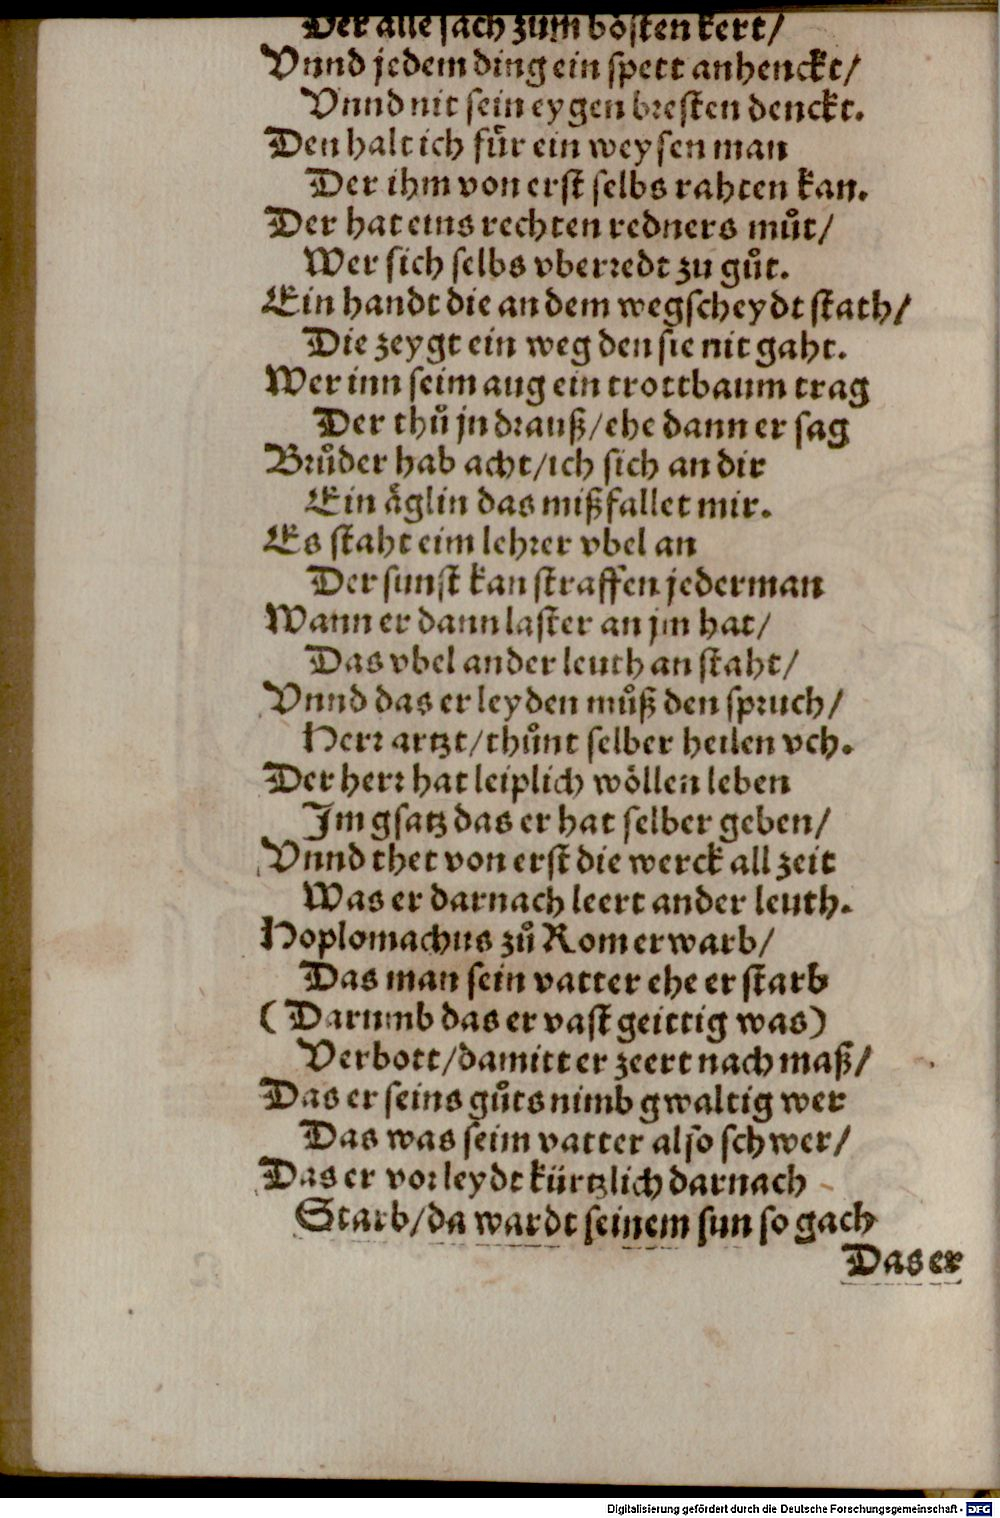 Der alle sach zum bösten kert/
Vnnd jedem ding ein spett anhenckt/
Vnnd nit sein eygen bresten denckt.
Den halt ich für ein weysen man
Der ihm von erst selbs rahten kan.
Der hat eins rechten redners můt/
Wer sich selbs vberredt zu gůt.
Ein handt die an dem wegscheydt stath/
Die zeygt ein weg den sie nit gaht.
Wer inn seim aug ein trottbaum trag
Der thů jn drauß/ehe dann er sag
Brůder hab acht/ich sich an dir
Ein äglin das mißfallet mir.
Es staht eim lehrer vbel an
Der sunst kan straffen jederman
Wann er dann laster an jm hat/
Das vbel ander leuth an staht/
Vnnd das er leyden můß den spruch/
Herr artzt/thůnt selber heilen vch.
Der herr hat leiplich wöllen leben
Im gsatz das er hat selber geben/
Vnnd thet von erst die werck all zeit
Was er darnach leert ander leuth.
Hoplomachus zů Rom erwarb/
Das man sein vatter ehe er starb
(Darumb das er vast geittig was)
Verbott/damitt er zeert nach maß/
Das er seins gůts nimb gwaltig wer
Das was seim vatter also schwer/
Das er vor leydt kürtzlich darnach
Starb/da wardt seinem sun so gach
Das er
Digitalisierung gefördert durch die Deutsche Forschungsgemeinschaft - DFG